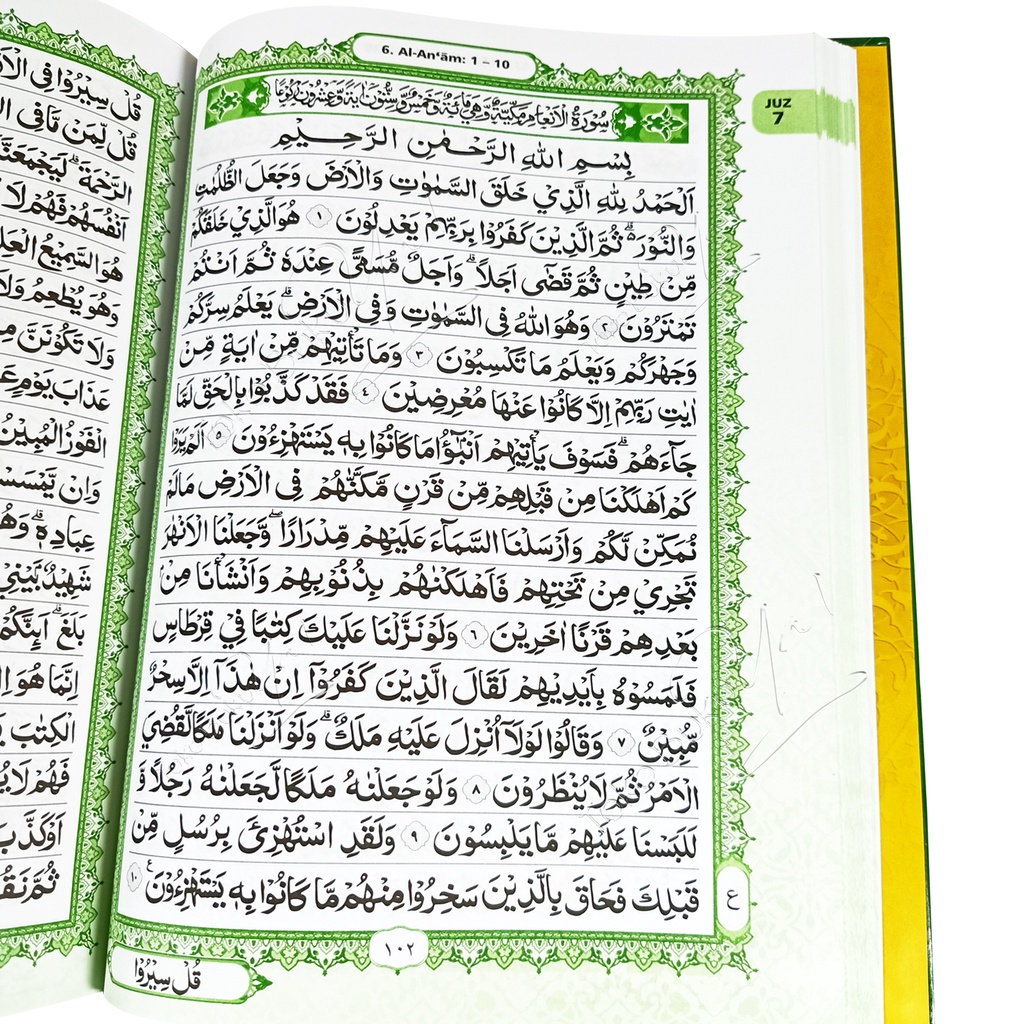 6. Al-An‘ām: 1 – 10
JUZ
7
سُوْرَةُ الْاَنْعَامِ مَكِّيَّةٌ وَّهِيَ مِائَةٌ وَّخَمْسٌ وَّسِتُّوْنَ اٰيَةً وَّعِشْرُوْنَ رُكُوْعًا
بِسْمِ اللّٰهِ الرَّحْمٰنِ الرَّحِيْمِ
اَلْحَمْدُ لِلّٰهِ الَّذِيْ خَلَقَ السَّمٰوٰتِ وَالْاَرْضَ وَجَعَلَ الظُّلُمٰتِ
وَالنُّوْرَ ۗ ثُمَّ الَّذِيْنَ كَفَرُوْا بِرَبِّهِمْ يَعْدِلُوْنَ ١ هُوَ الَّذِيْ خَلَقَكُمْ
مِّنْ طِيْنٍ ثُمَّ قَضٰٓى اَجَلًا ۗ وَاَجَلٌ مُّسَمًّى عِنْدَهٗ ثُمَّ اَنْتُمْ
تَمْتَرُوْنَ ٢ وَهُوَ اللّٰهُ فِى السَّمٰوٰتِ وَفِى الْاَرْضِ ۗ يَعْلَمُ سِرَّكُمْ
وَجَهْرَكُمْ وَيَعْلَمُ مَا تَكْسِبُوْنَ ٣ وَمَا تَأْتِيْهِمْ مِّنْ اٰيَةٍ مِّنْ
اٰيٰتِ رَبِّهِمْ اِلَّا كَانُوْا عَنْهَا مُعْرِضِيْنَ ٤ فَقَدْ كَذَّبُوْا بِالْحَقِّ لَمَّا
جَاۤءَهُمْ ۗ فَسَوْفَ يَأْتِيْهِمْ اَنْۢبٰۤؤُا مَا كَانُوْا بِهٖ يَسْتَهْزِءُوْنَ ٥ اَلَمْ يَرَوْا
كَمْ اَهْلَكْنَا مِنْ قَبْلِهِمْ مِّنْ قَرْنٍ مَّكَّنّٰهُمْ فِى الْاَرْضِ مَا لَمْ
نُمَكِّنْ لَّكُمْ وَاَرْسَلْنَا السَّمَاۤءَ عَلَيْهِمْ مِّدْرَارًا ۖ وَّجَعَلْنَا الْاَنْهٰرَ
تَجْرِيْ مِنْ تَحْتِهِمْ فَاَهْلَكْنٰهُمْ بِذُنُوْبِهِمْ وَاَنْشَأْنَا مِنْۢ
بَعْدِهِمْ قَرْنًا اٰخَرِيْنَ ٦ وَلَوْ نَزَّلْنَا عَلَيْكَ كِتٰبًا فِيْ قِرْطَاسٍ
فَلَمَسُوْهُ بِاَيْدِيْهِمْ لَقَالَ الَّذِيْنَ كَفَرُوْٓا اِنْ هٰذَآ اِلَّا سِحْرٌ
مُّبِيْنٌ ٧ وَقَالُوْا لَوْلَآ اُنْزِلَ عَلَيْهِ مَلَكٌ ۗ وَلَوْ اَنْزَلْنَا مَلَكًا لَّقُضِيَ
الْاَمْرُ ثُمَّ لَا يُنْظَرُوْنَ ٨ وَلَوْ جَعَلْنٰهُ مَلَكًا لَّجَعَلْنٰهُ رَجُلًا وَّ
لَلَبَسْنَا عَلَيْهِمْ مَّا يَلْبِسُوْنَ ٩ وَلَقَدِ اسْتُهْزِئَ بِرُسُلٍ مِّنْ
قَبْلِكَ فَحَاقَ بِالَّذِيْنَ سَخِرُوْا مِنْهُمْ مَّا كَانُوْا بِهٖ يَسْتَهْزِءُوْنَ ࣖ ١٠
ع
١٠٢
قُلْ سِيْرُوْا
قُلْ سِيْرُوْا فِى
قُلْ لِّمَنْ مَّا فِى
الرَّحْمَةَ ۗ لَيَجْمَعَنَّ
اَنْفُسَهُمْ فَهُمْ لَا
هُوَ السَّمِيْعُ
وَهُوَ يُطْعِمُ وَلَا
وَلَا تَكُوْنَنَّ
عَذَابَ يَوْمٍ
الْفَوْزُ الْمُبِيْنُ
وَاِنْ يَّمْسَسْ
عِبَادِهٖ ۗ
شَهِيْدٌۢ بَيْنِيْ
بَلَغَ ۗ اَىِٕنَّكُمْ
اِنَّمَا هُوَ
الْكِتٰبَ
فَهُمْ لَا
اَوْ كَذَّبَ
ثُمَّ